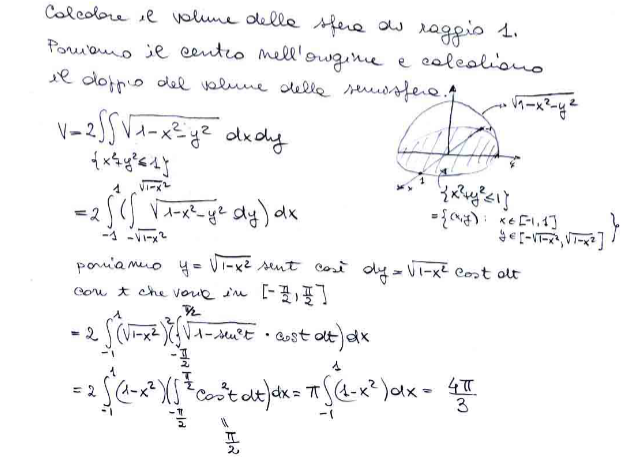 Calcolare il volume della sfera di raggio 1.
Poniamo il centro nell'origine e calcoliamo
il doppio del volume della semisfera.
√1-x²-y²
V=2∫∫ √1-x²-y² dxdy
{x²+y²≤1}
y
x
1
{x²+y²≤1}
={(x,y): x∈[-1,1]
y∈[-√1-x²,√1-x²]}
=2∫₋₁¹(∫_{-√1-x²}^{√1-x²} √1-x²-y² dy)dx
poniamo y=√1-x² sent così dy=√1-x² cost dt
con t che varia in [-π/2,π/2]
=2∫₋₁¹(√1-x²)²(∫_{-π/2}^{π/2}√1-sen²t · cost dt)dx
=2∫₋₁¹(1-x²)(∫_{-π/2}^{π/2}cos²t dt)dx=π∫₋₁¹(1-x²)dx= 4π/3
=
π/2